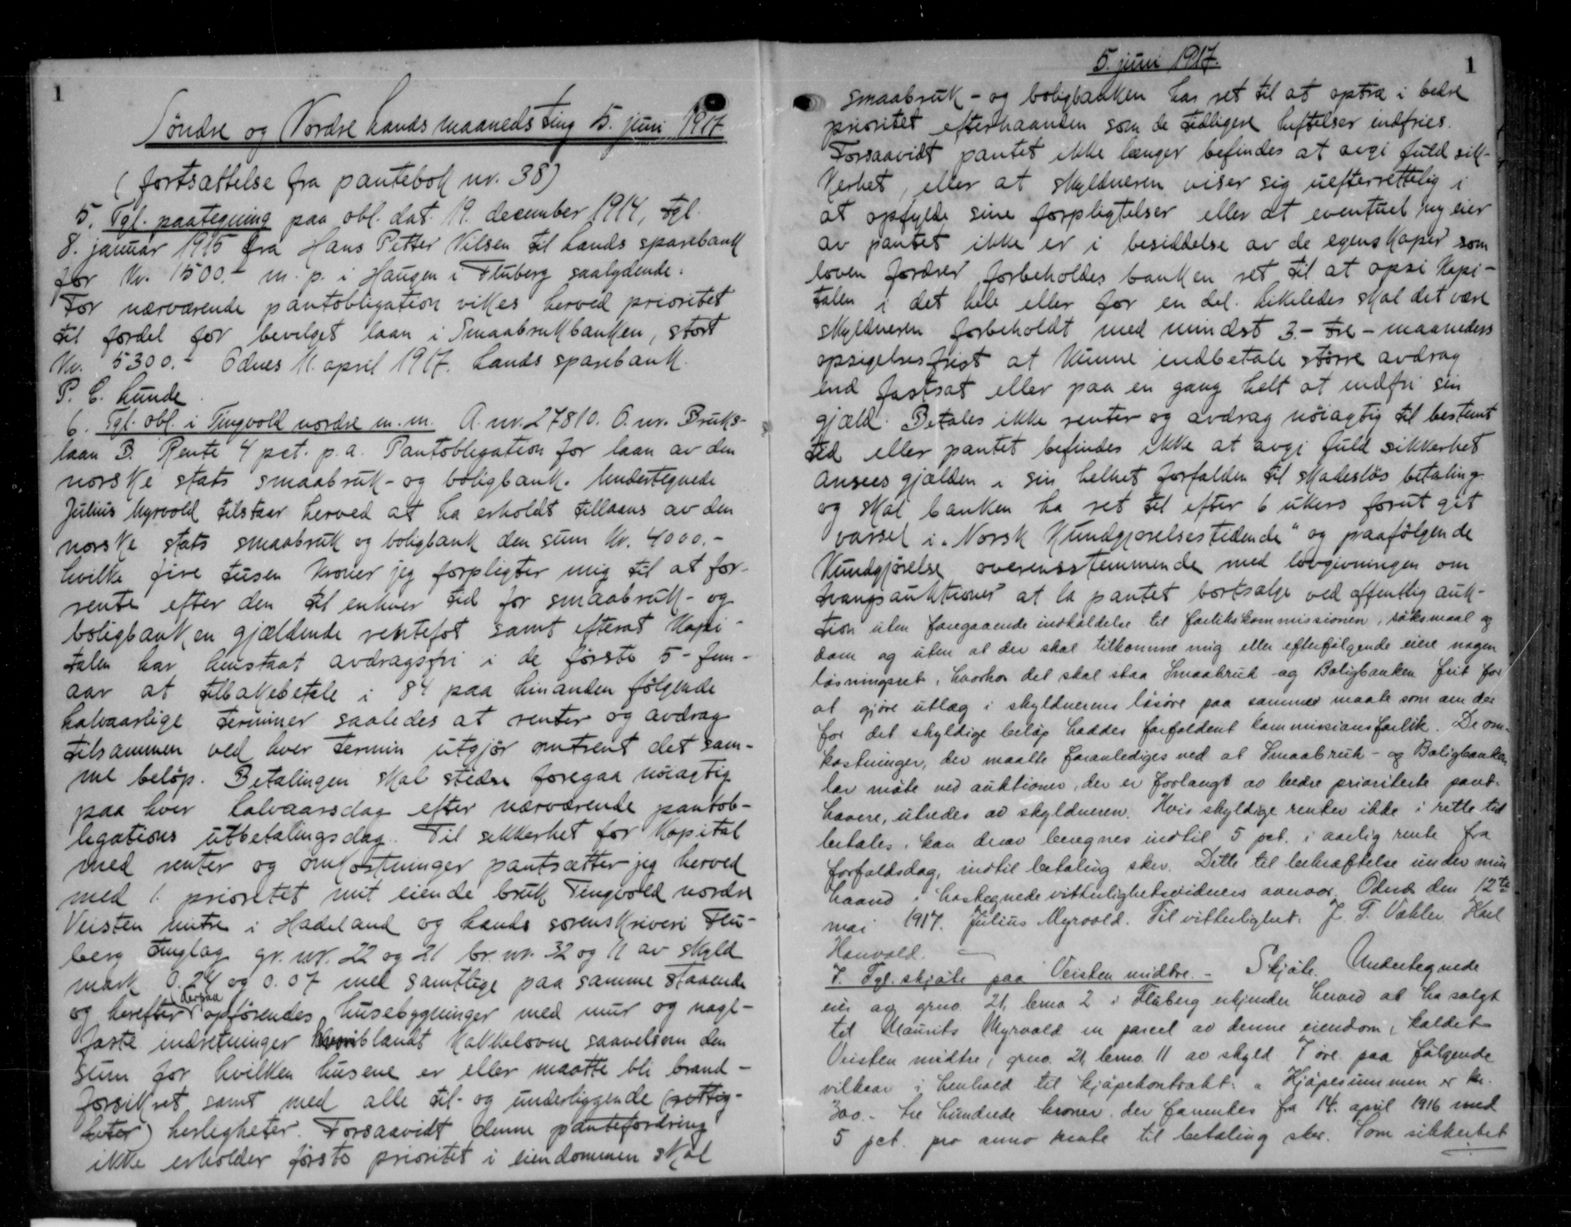 1
Söndre og Nordre Lands maanedsting 5. juni 1917
(fortsættelse fra pantebok nr. 38)
5. Tgl. paategning paa obl. dat. 19. december 1914, tgl.
8. januar 1915 fra Hans Petter Nilsen til Lands sparebank
for kr. 1500.- m. p. i Haugen i Fluberg saalydende:
For nærværende pantobligation vikes herved prioritet
til fordel for bevilget laan i Smaabrukbanken, stort
kr. 5300.- Odnes 11. april 1917. Lands sparebank.
P. C. Lunde.
6. Tgl. obl. i Tingvold nordre m.m. A. nr. 27810. O. nr. Bruks-
laan B. Rente 4 pct. p. a. Pantobligation for laan av den
norske stats smaabruk- og boligbank. Undertegnede
Julius Myrvold tilstaar herved at ha erholdt tillaans av den
norske stats smaabruk og boligbank den sum kr. 4000.-
hvilke fire tusen kroner jeg forpligter mig til at for-
rente efter den til enhver tid for smaabruk- og
boligbanken gjældende rentefot samt efterat kapi-
talen har henstaat avdragsfri i de förste 5-fem-
aar at tilbakebetale i 84 paa hinanden fölgende
halvaarlige terminer saaledes at renter og avdrag
tilsammen ved hver termin utgjör omtrent det sam-
me belöp. Betalingen skal stedse foregaa nöiagtig
paa hver halvaarsdag efter nærværende pantob-
ligations utbetalingsdag. Til sikkerhet for kapital
med renter og omkostninger pantsætter jeg herved
med 1. prioritet mit eiende bruk Tingvold nordre
Veisten mitre i Hadeland og Lands sorenskriveri Flu-
berg tinglag gr. nr. 22 og 21 br. nr. 32 og 11 av skyld
mark 0.24 og 0.07 med samtlige paa samme staaende
og herefter derpaa opförendes husebygninger med mur og nagl-
faste indretninger hvoriblandt kakkelovne saavelsom den
sum for hvilken husene er eller maatte bli brand-
forsikret samt med alle til- og underliggende (rettig-
heter) herligheter. Forsaavidt denne pantefordring
ikke erholder förste prioritet i eiendommen skal
5. juni 1917.
1
smaabruk- og boligbanken har ret til at optræ i bedre
prioritet efterhaanden som de tidligere heftelser indfries.
Forsaavidt pantet ikke længer befindes at avgi fuld sik-
kerhet, eller at skyldneren viser sig uefterrettelig i
at opfylde sine forpligtelser eller at eventuel ny eier
av pantet ikke er i besiddelse av de egenskaper som
loven fordrer forbeholdes banken ret til at opsi kapi-
talen i det hele eller for en del. Likeledes skal det være
skyldneren forbeholdt med mindst 3-tre-maaneders
opsigelsesfrist at kunne indbetale större avdrag
end fastsat eller paa en gang helt at indfri sin
gjæld. Betales ikke renter og avdrag nöiagtig til bestemt
tid eller pantet befindes ikke at avgi fuld sikkerhet
ansees gjælden i sin helhet forfalden til skadeslös betaling
og skal banken ha ret til efter 6 ukers forut git
varsel i „Norsk Kundgjörelsestidende" og paafölgende
kundgjörelse overensstemmende med lovgivningen om
tvangsauktioner at la pantet bortsælge ved offentlig auk-
tion uten foregaaende indkaldelse til forlikskommissionen, söksmaal og
dom og uten at der skal tilkomme mig eller efterfölgende eiere nogen
lösningsret, hvorhos det skal staa Smaabruk og Boligbanken frit for
at gjöre utlæg i skyldnerens lösöre paa samme maate som om der
for det skyldige belöp haddes forfaldent kommissionsforlik. De om-
kostninger, der maatte foranlediges ved at Smaabruk- og Boligbanken
lar möte ved auktioner, der er forlangt av bedre prioriterte pant-
havere, utredes av skyldneren. Hvis skyldige renter ikke i rette tid
betales, kan derav beregnes indtil 5 pct. i aarlig rente fra
forfaldsdag, indtil betaling sker. Dette til bekræftelse under min
haand i hostegnede vitterlighetsvidners overvær. Odnes den 12te
mai 1917. Julius Myrvold. Til vitterlighet: J. T. Karl
7. Tgl. skjöte paa Veisten midtre.- Skjöte. Undertegnede
eier av grno. 21, brno 2 i Fluberg erkjender herved at ha solgt
til Maurits Myrvold en parcel av denne eiendom, kaldet
Veisten midtre, grno. 21, brno. 11 av skyld 7 öre paa fölgende
vilkaar i henhold til kjöpekontrakt: a Kjöpesummen er kr.
300.- tre hundrede kroner, der forrentes fra 14. april 1916 med
5 pct. pro anno rente til betaling sker. Som sikkerhet